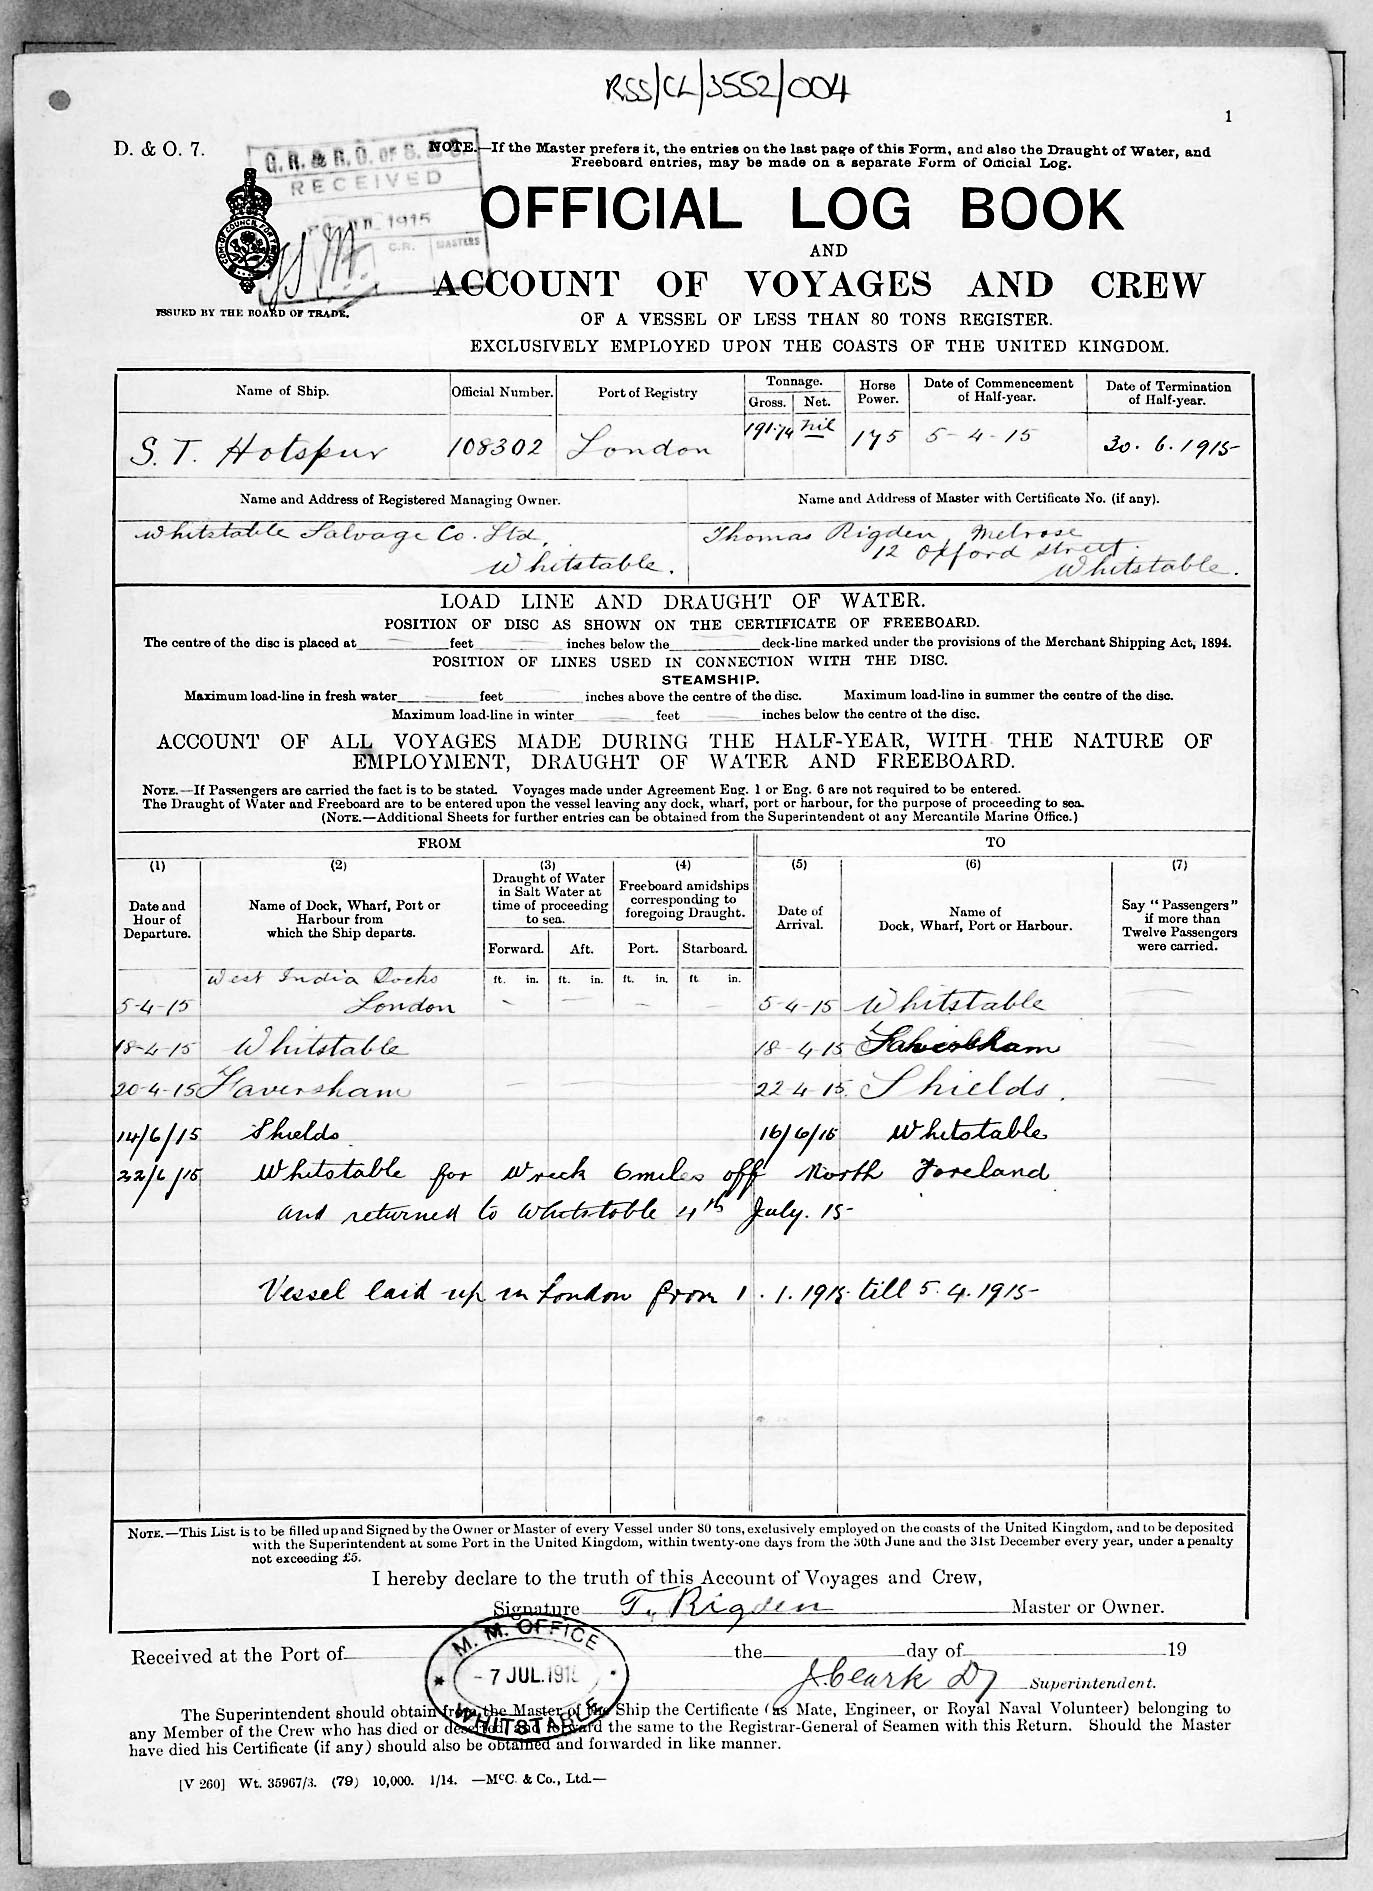 RSS/CL/3552/004
1
D. & O. 7.
G. R. & R. O. of S. & S.
RECEIVED
1915
C.R. MASTERS
NOTE.—If the Master prefers it, the entries on the last page of this Form, and also the Draught of Water, and
Freeboard entries, may be made on a separate Form of Official Log.
OFFICIAL LOG BOOK
AND
ACCOUNT OF VOYAGES AND CREW
ISSUED BY THE BOARD OF TRADE.
OF A VESSEL OF LESS THAN 80 TONS REGISTER.
EXCLUSIVELY EMPLOYED UPON THE COASTS OF THE UNITED KINGDOM.
Name of Ship. Official Number. Port of Registry Tonnage. Gross. Net. Horse Power. Date of Commencement of Half-year. Date of Termination of Half-year.
S. T. Hotspur 108302 London 191.74 nil 175 5-4-15 30.6.1915
Name and Address of Registered Managing Owner. Name and Address of Master with Certificate No. (if any).
Whitstable Salvage Co. Ltd, Thomas Rigden, Melrose
12 Oxford Street.
Whitstable. Whitstable.
LOAD LINE AND DRAUGHT OF WATER.
POSITION OF DISC AS SHOWN ON THE CERTIFICATE OF FREEBOARD.
The centre of the disc is placed at feet inches below the deck-line marked under the provisions of the Merchant Shipping Act, 1894.
POSITION OF LINES USED IN CONNECTION WITH THE DISC.
STEAMSHIP.
Maximum load-line in fresh water feet inches above the centre of the disc. Maximum load-line in summer the centre of the disc.
Maximum load-line in winter feet inches below the centre of the disc.
ACCOUNT OF ALL VOYAGES MADE DURING THE HALF-YEAR, WITH THE NATURE OF
EMPLOYMENT, DRAUGHT OF WATER AND FREEBOARD.
NOTE.—If Passengers are carried the fact is to be stated. Voyages made under Agreement Eng. 1 or Eng. 6 are not required to be entered.
The Draught of Water and Freeboard are to be entered upon the vessel leaving any dock, wharf, port or harbour, for the purpose of proceeding to sea.
(NOTE.—Additional Sheets for further entries can be obtained from the Superintendent of any Mercantile Marine Office.)
FROM TO
(1) (2) (3) (4) (5) (6) (7)
Date and Hour of Departure. Name of Dock, Wharf, Port or Harbour from which the Ship departs. Draught of Water in Salt Water at time of proceeding to sea. Freeboard amidships corresponding to foregoing Draught. Date of Arrival. Name of Dock, Wharf, Port or Harbour. Say "Passengers" if more than Twelve Passengers were carried.
Forward. Aft. Port. Starboard.
West India Docks ft. in. ft. in. ft. in. ft. in.
5-4-15 London 5-4-15 Whitstable
18-4-15 Whitstable 18-4-15 Faversham
20-4-15 Faversham 22-4-15 Shields.
14/6/15 Shields 16/6/15 Whitstable
22/6/15 Whitstable for Wreck 6 miles off North Foreland
and returned to Whitstable 4th July. 15
Vessel laid up in London from 1.1.1915 till 5.4.1915
NOTE.—This List is to be filled up and Signed by the Owner or Master of every Vessel under 80 tons, exclusively employed on the coasts of the United Kingdom, and to be deposited
with the Superintendent at some Port in the United Kingdom, within twenty-one days from the 30th June and the 31st December every year, under a penalty
not exceeding £5.
I hereby declare to the truth of this Account of Voyages and Crew,
Signature T. Rigden Master or Owner.
Received at the Port of the day of 19
M. M. OFFICE
- 7 JUL. 1915
WHITSTABLE
J. Clark Dy Superintendent.
The Superintendent should obtain from the Master of the Ship the Certificate (as Mate, Engineer, or Royal Naval Volunteer) belonging to
any Member of the Crew who has died or deserted, and forward the same to the Registrar-General of Seamen with this Return. Should the Master
have died his Certificate (if any) should also be obtained and forwarded in like manner.
[V 260] Wt. 35967/3. (79) 10,000. 1/14. —McC. & Co., Ltd.—